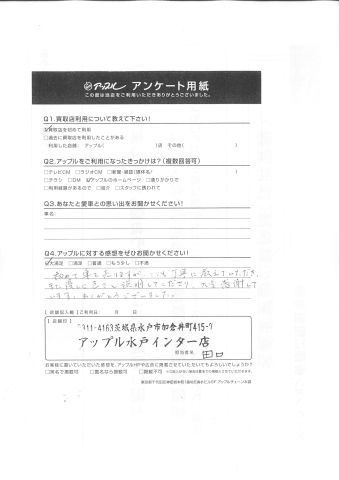 アップル アンケート用紙
この度は当店をご利用いただきありがとうございました。
Q1.買取店利用について教えて下さい!
☑買取店を初めて利用
□過去に買取店を利用したことがある
利用した店舗： アップル( )店 その他( )
Q2.アップルをご利用になったきっかけは?(複数回答可)
□テレビCM □ラジオCM □新聞・雑誌(媒体名: )
□チラシ □DM ☑アップルのホームページ □通りがかりで
□利用経験があるので □紹介 □スタッフに誘われて
Q3.あなたと愛車との思い出をお聞かせください!
車名：
Q4.アップルに対する感想をぜひお聞かせください!
☑大満足 □満足 □普通 □もう少し □不満
初めて車を売りますが、いつも丁寧に教えていただき、
また 説明してくださり、大変感謝して
います。ありがとうございました。
【店舗記入欄】ご利用日： 月 日
【店舗印】
〒311-4163茨城県水戸市加倉井町415-7
アップル水戸インター店
担当者名 田口
お客様に書いていただいた感想を、アップルHPや店頭に掲載させていただいてもよろしいでしょうか?
□実名で掲載可 □匿名なら掲載可 □掲載不可